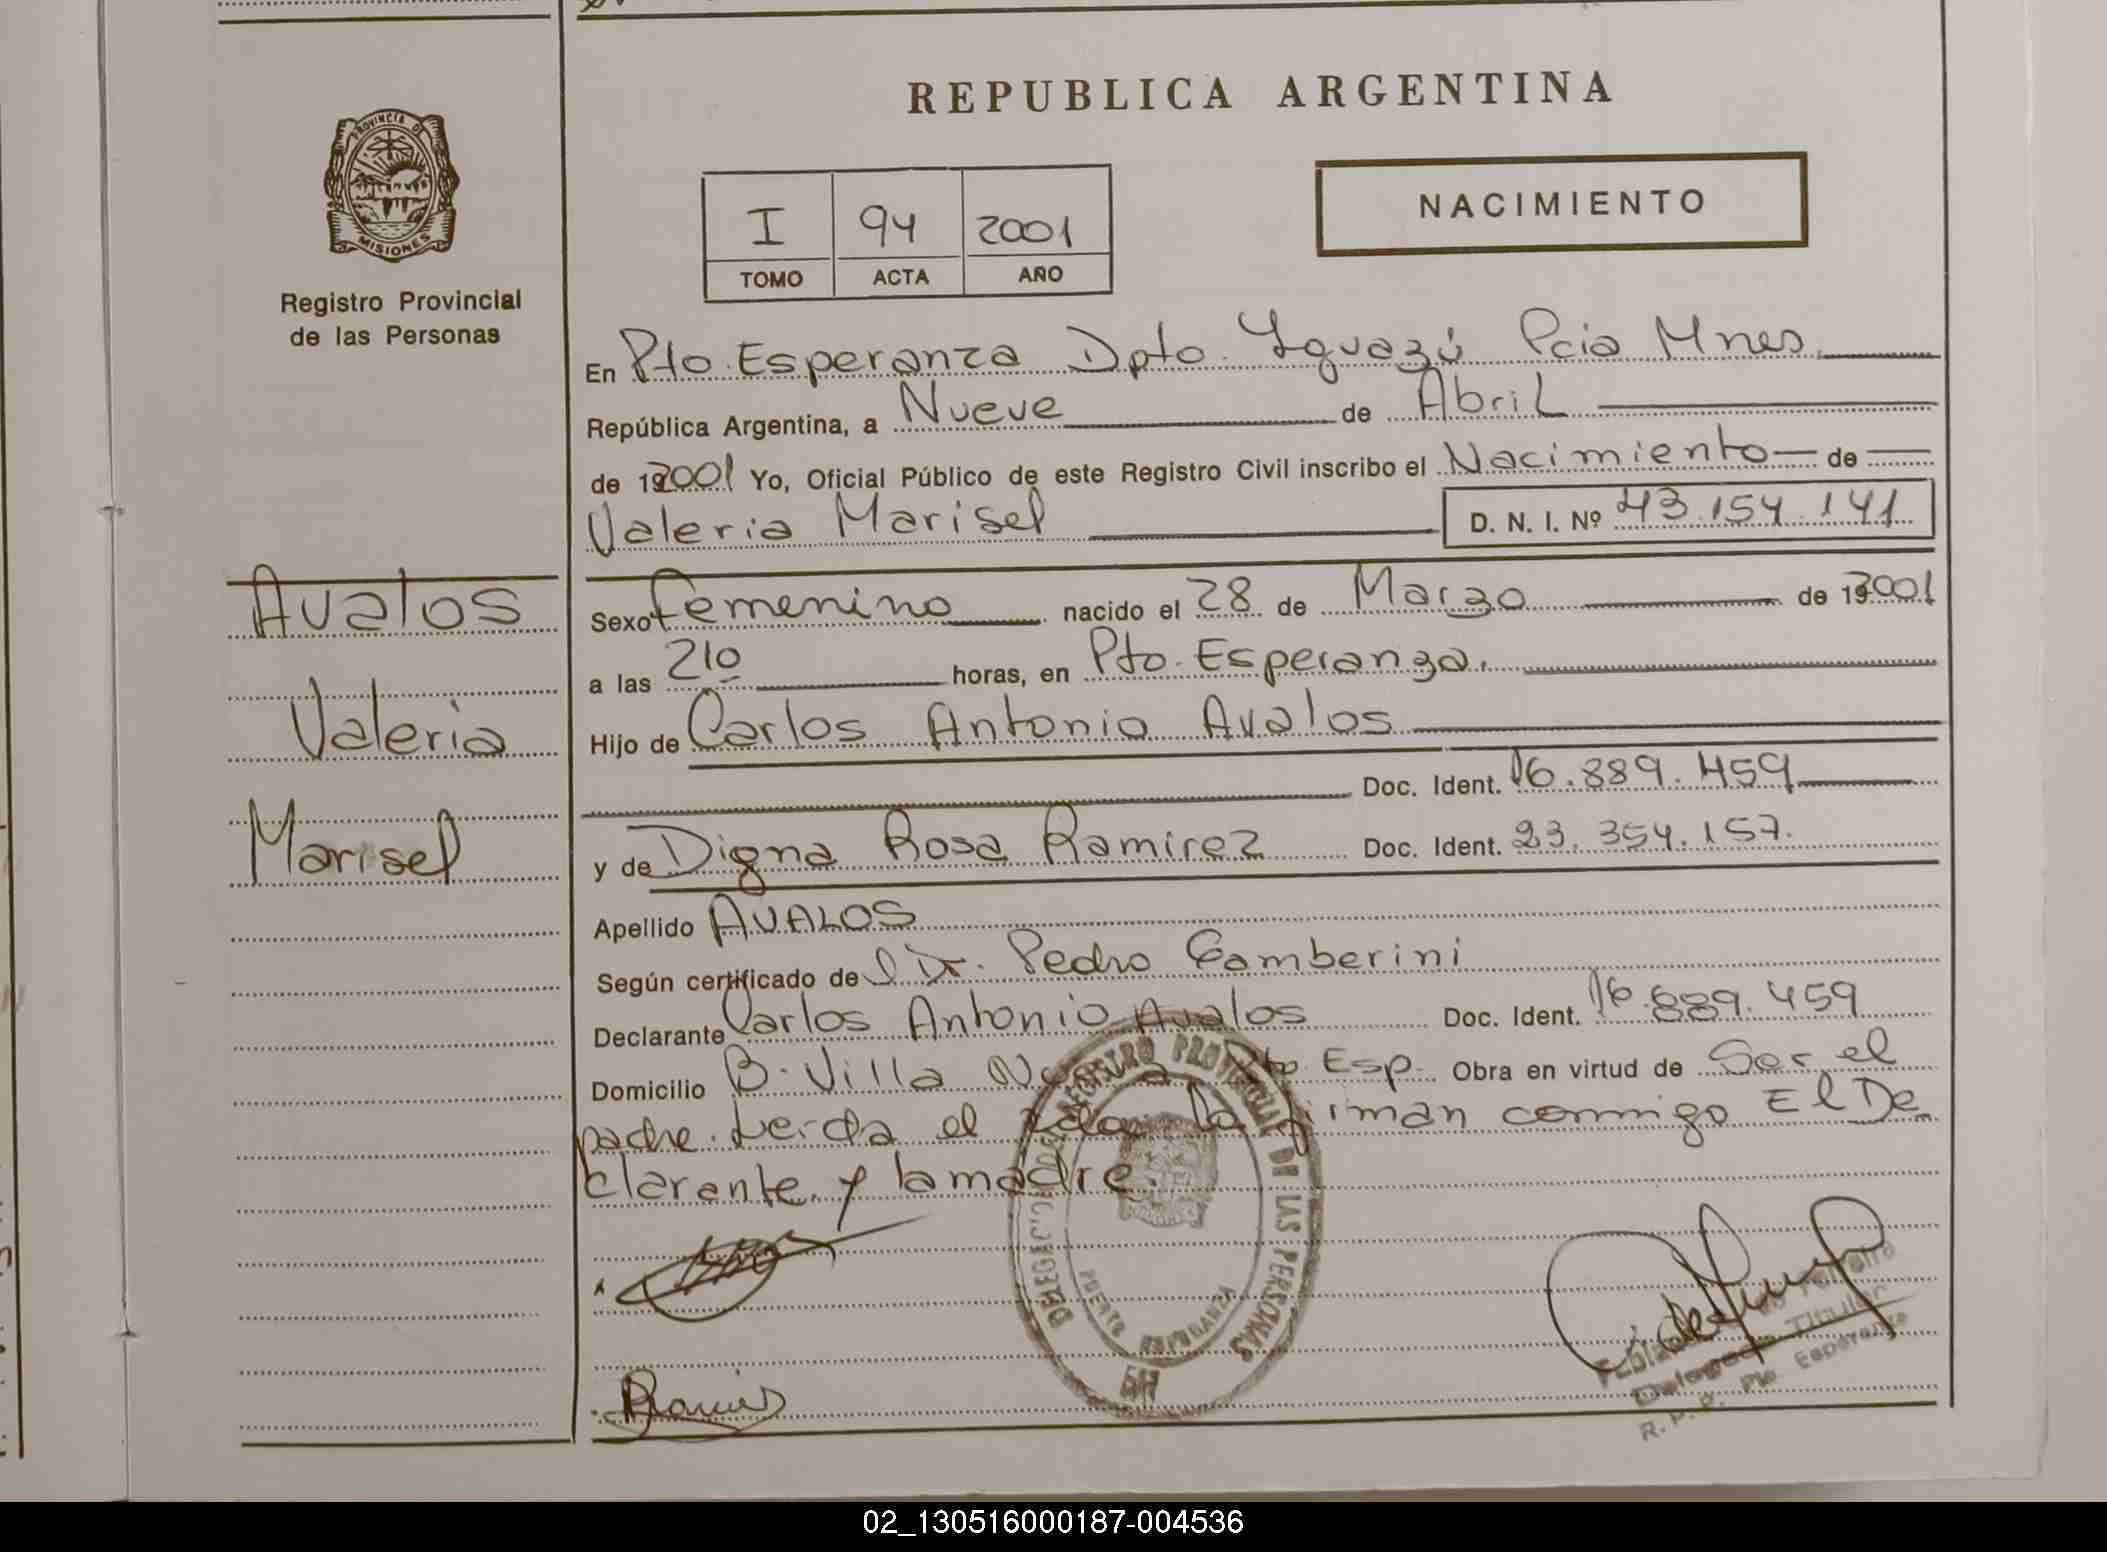 REPUBLICA ARGENTINA
PROVINCIA DE
MISIONES
Registro Provincial
de las Personas
I 94 2001
TOMO ACTA AÑO
NACIMIENTO
En Pto. Esperanza Dpto. Iguazú Pcia Mnes.
República Argentina, a Nueve de Abril
de 192001 Yo, Oficial Público de este Registro Civil inscribo el Nacimiento de
Valeria Marisel D. N. I. Nº 43.154.141
Avalos
Valeria
Marisel
Sexo Femenino nacido el 28 de Marzo de 192001
a las 210 horas, en Pto. Esperanza.
Hijo de Carlos Antonio Avalos
Doc. Ident. 16.889.459
y de Digna Rosa Ramirez Doc. Ident. 23.354.157.
Apellido AVALOS
Según certificado del Dr. Pedro Gamberini
Declarante Carlos Antonio Avalos Doc. Ident. 16.889.459
Domicilio B. Villa Pto Esp. Obra en virtud de Ser el
padre. Leida el firman conmigo El De
clarante y la madre.
REGISTRO PROVINCIAL DE LAS PERSONAS
PUERTO ESPERANZA
Titular
R. P. P. Pto. Esperanza
02_130516000187-004536